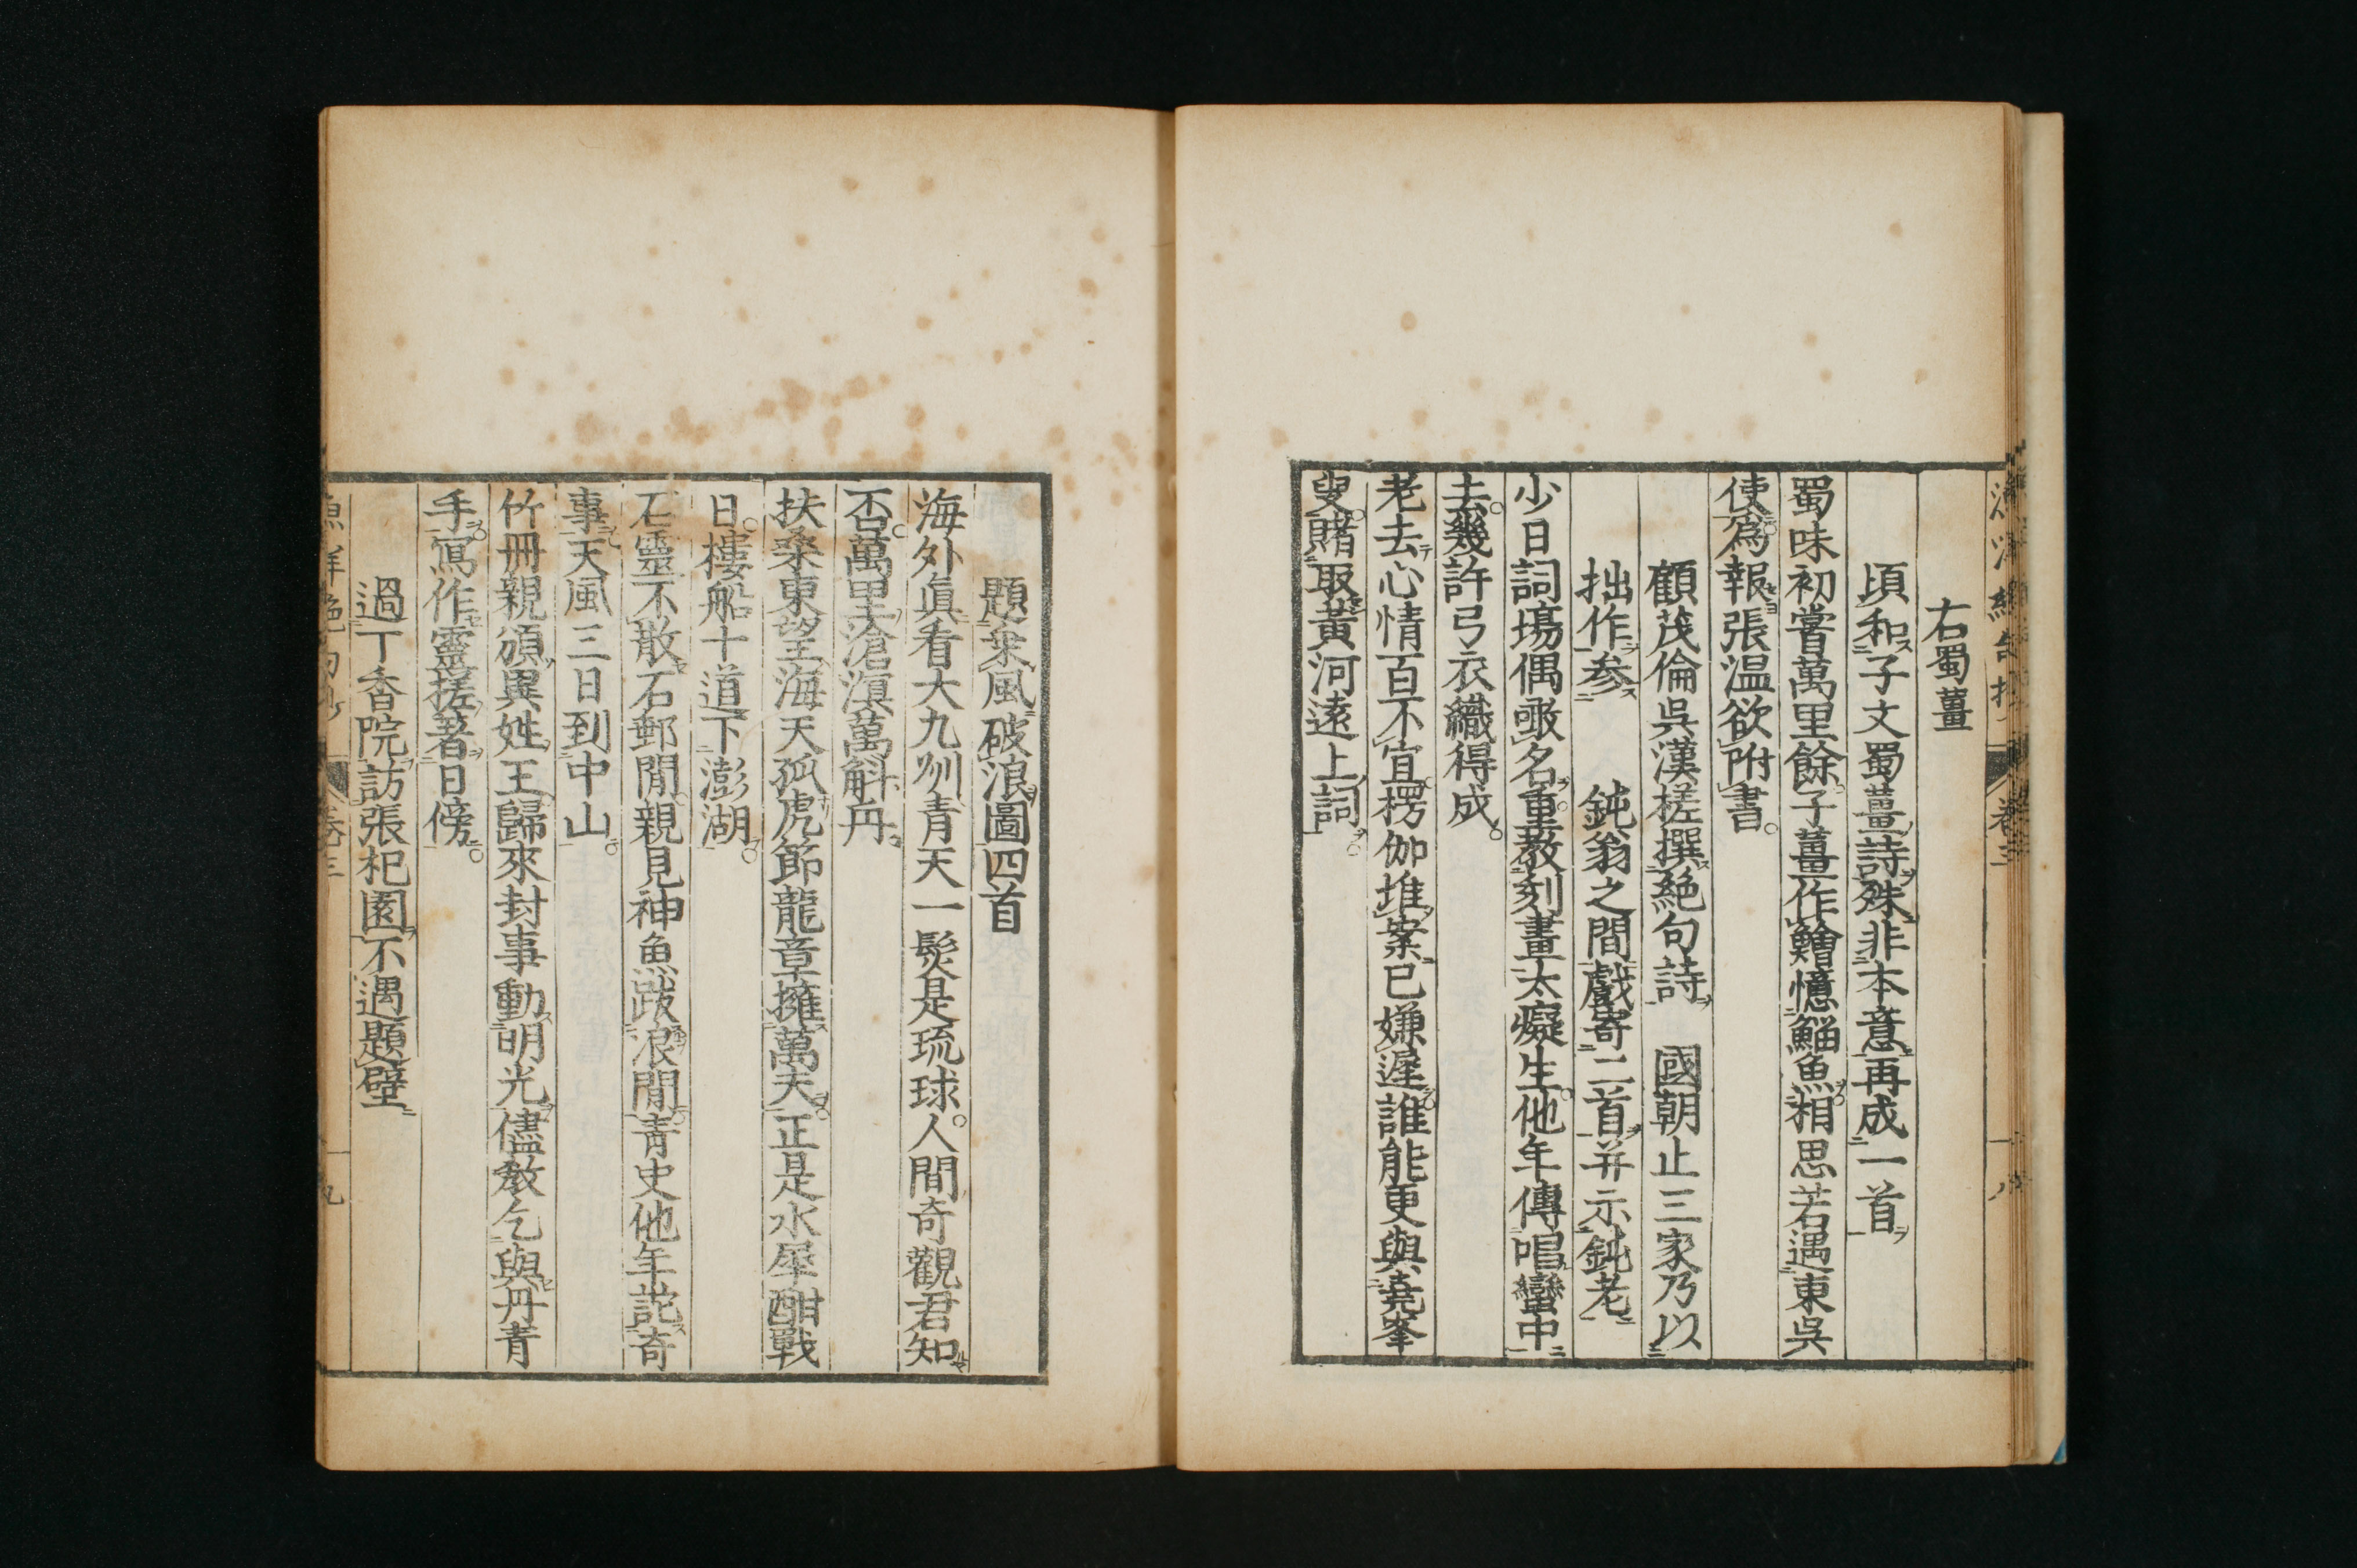 右蜀薑
頃和子文蜀薑詩殊非本意再成一首
蜀味初嘗萬里餘子薑作鱠憶鯔魚相思若遇東吳
使爲報張温欲附書
顧茂倫吳漢槎撰絶句詩 國朝止三家乃以
拙作参 鈍翁之間戲寄二首并示鈍老
少日詞塲偶噉名重教刻畫太癡生他年傳唱蠻中
去幾許弓衣織得成
老去心情百不宜楞伽堆案已嫌遲誰能更與堯峯
叟賭取黃河遠上詞
題乗風破浪圖四首
海外眞看大九州青天一髮是琉球人間奇觀君知
否萬里滄溟萬斛舟
扶桑東望海天孤虎節龍章擁萬夫正是水犀酣戰
日樓船十道下澎湖
石靈不散石郵閒親見神魚跋浪間青史他年詫奇
事天風三日到中山
竹冊親頒異姓王歸來封事動明光儘教乞與丹青
手寫作靈槎著日傍
過丁香院訪張杞園不遇題壁
漁洋絶句抄 卷三 一九